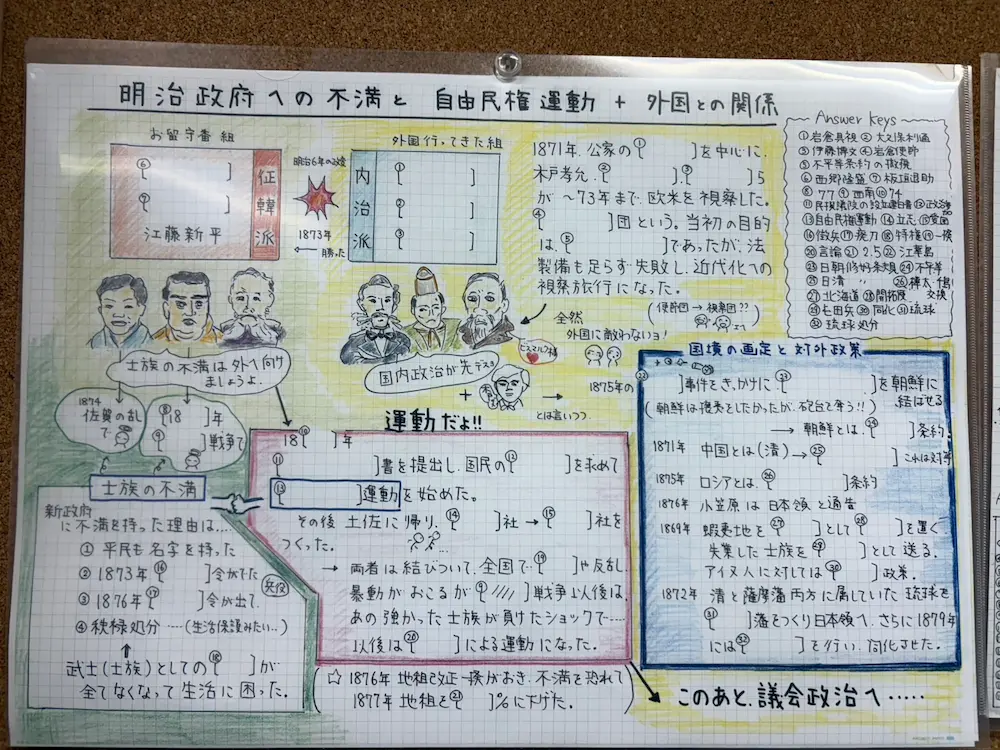 明治政府への不満と 自由民権運動 + 外国との関係
お留守番組
⑥
⑦
江藤新平
征韓派
明治6年の政変
1873年
← 勝った
外国行ってきた組
内治派
①
②
③
1871年、公家の①[ ]を中心に、
木戸孝允、②[ ]、③[ ]ら
が〜73年まで、欧米を視察した。
④[ ]団という。当初の目的
は、⑤[ ]であったが、法
整備も足らず失敗し、近代化への
視察旅行になった。
(使節団→視察団??)
Answer Keys
①岩倉具視 ②大久保利通
③伊藤博文 ④岩倉使節
⑤不平等条約の撤廃
⑥西郷隆盛 ⑦板垣退助
⑧77 ⑨西南 ⑩74
⑪民撰議院の設立建白書 ⑫政治参加
⑬自由民権運動 ⑭立志 ⑮愛国
⑯徴兵 ⑰廃刀 ⑱特権 ⑲一揆
⑳言論 ㉑2.5 ㉒江華島
㉓日朝修好条規 ㉔不平等
㉕日清 〃 ㉖樺太・千島
㉗北海道 ㉘開拓使 交換
㉙屯田兵 ㉚同化 ㉛琉球
㉜琉球処分
士族の不満は外へ向け
ましょうよ。
国内政治が先デスヨ
全然
外国に敵わないヨ!
ビスマルク様
+
→
とは言いつつ
1874
佐賀の乱
で
⑧18[ ]年
⑨[ ]戦争で
士族の不満
新政府
に不満を持った理由は…
① 平民も名字を持った
② 1873年⑯[ ]令がでた
兵役
③ 1876年⑰[ ]令が出て、
④ 秩禄処分…(生活保護みたい…)
武士(士族)としての⑱[ ]が
全てなくなって生活に困った。
運動だよ!!
18⑩[ ]年
⑪[ ]書を提出し、国民の⑫[ ]を求めて
⑬[ ]運動を始めた。
その後 土佐に帰り、⑭[ ]社→⑮[ ]社を
つくった。
→ 両者は結びついて、全国で⑲[ ]や反乱、
暴動がおこるが⑨////]戦争以後は、
あの強かった士族が負けたショックで……
以後は⑳[ ]による運動になった。
☆ 1876年 地租改正一揆がおき、不満を恐れて
1877年 地租を㉑[ ]%に下げた。
国境の画定と対外政策
1875年の
㉒[ ]事件をきっかけに㉓[ ]を朝鮮に
結ばせる
(朝鮮は攘夷をしたかったが、砲台で争う!!)
→ 朝鮮とは、㉔[ ]条約。
1871年 中国とは(清)→㉕[ ]これは対等
1875年 ロシアとは、㉖[ ]条約
1876年 小笠原は日本領と通告
1869年 蝦夷地を㉗[ ]として㉘[ ]を置く
失業した士族を㉙[ ]として送る。
アイヌ人に対しては㉚[ ]政策。
1872年 清と薩摩藩両方に属していた琉球を
㉛[ ]藩をつくり日本領へ、さらに1879年
には㉜[ ]を行い、同化させた。
このあと、議会政治へ……